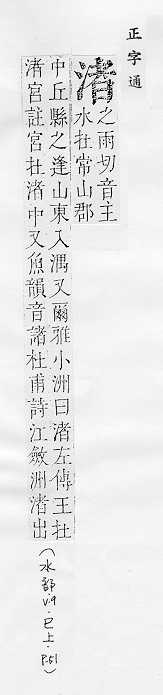 正字通
渚
之雨切音主
水在常山郡
中丘縣之逢山東入湡又爾雅小洲曰渚左傳王在
渚宮註宮在渚中又魚韻音諸杜甫詩江斂洲渚出
(水部 V.9 · 巳上 · P.51)